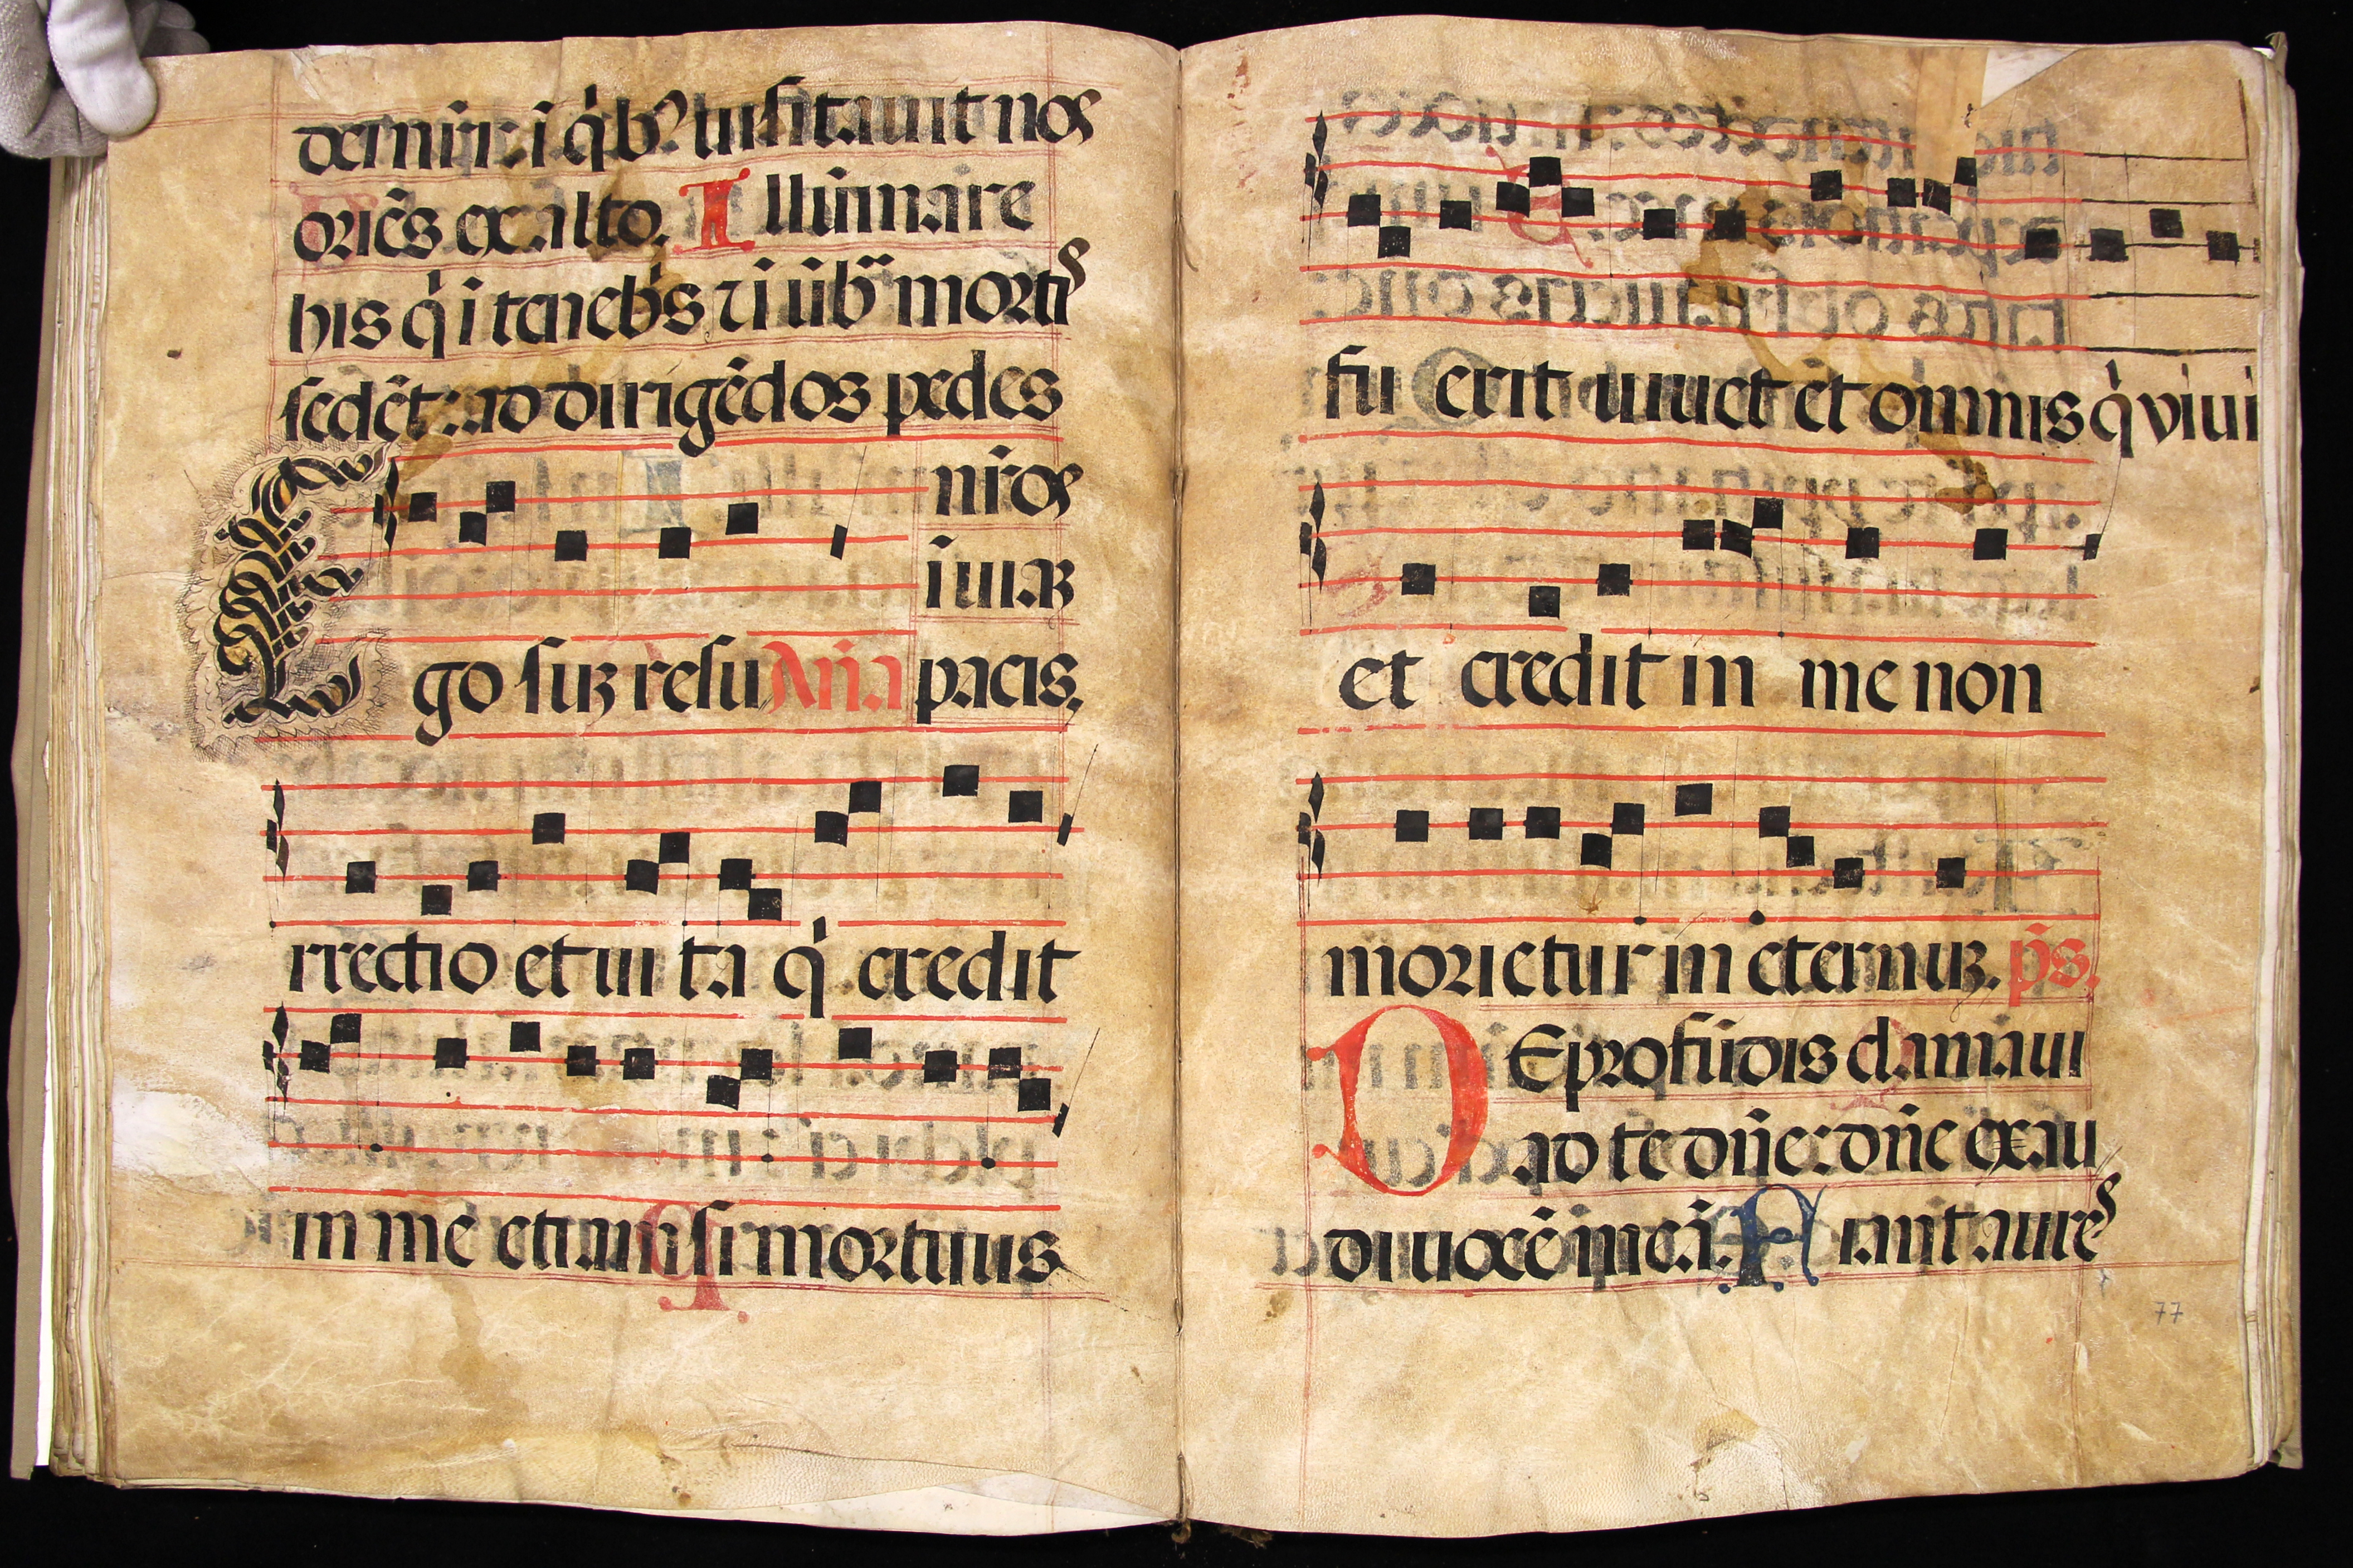 dei nr̄i: i q̇bꝰ uisitauit nos
oriēs ex alto. Illūinare
his q̇ i tenebˀs ⁊ i ūbᵃ mortis
sedēt: ad dirigēdos pedes
nr̄os
i uiaꝫ
pacis.
Ego suꝫ resu Añ.a
rrectio et uita q̇ credit
in me etiam si mortuus
fu erit uiuet et omnis q̇ viui
et credit in me non
morietur in eternuꝫ. p̄s.
DE profūdis clamaui
ad te dn̄e: dn̄e exau
di uocē meā. Fiant aures
77